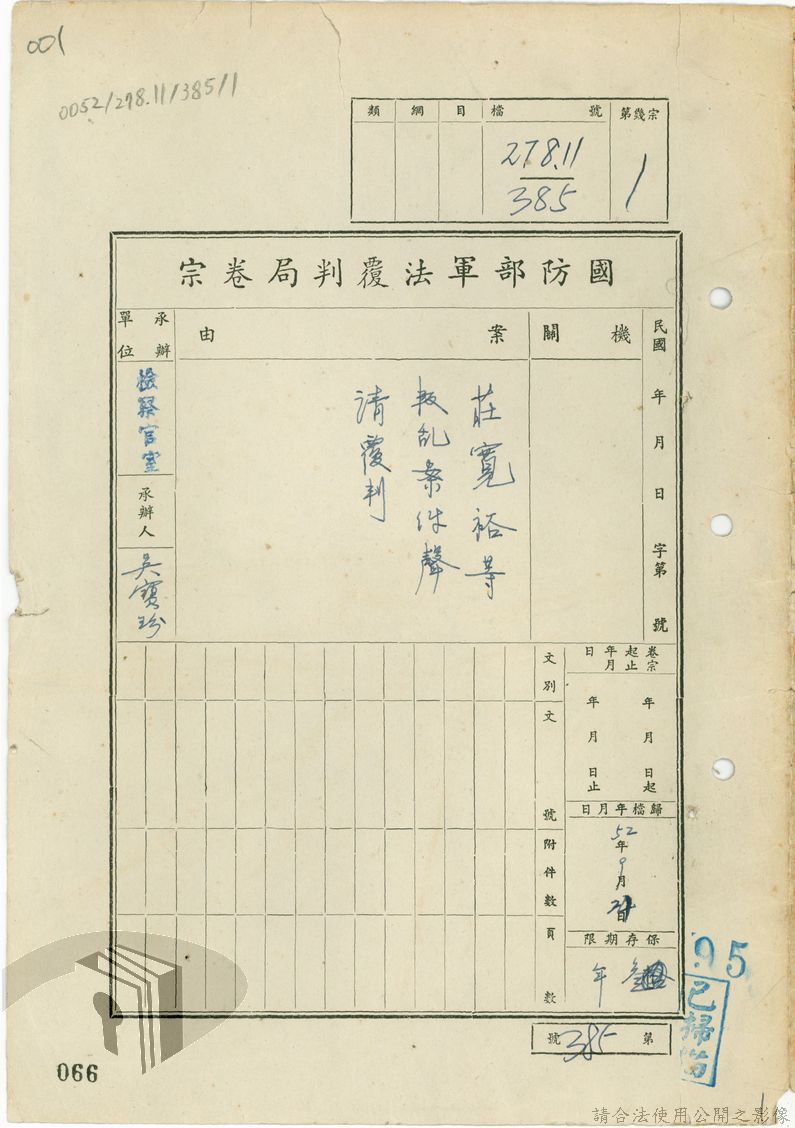 001
0052/278.11/385/1
類 綱 目 檔號 第幾宗
278.11
385
1
國防部軍法覆判局卷宗
民國 年 月 日 字第 號
機關
案由
莊寬裕等
叛乱案件聲
請覆判
承辦單位
檢察官室
承辦人
吳寶玢
文別
文號
附件數
頁數
卷宗起止年月日
年 月 日起
年 月 日止
歸檔年月日
52年9月 日
保存期限
年
第385號
95
已掃描
066
1
請合法使用公開之影像